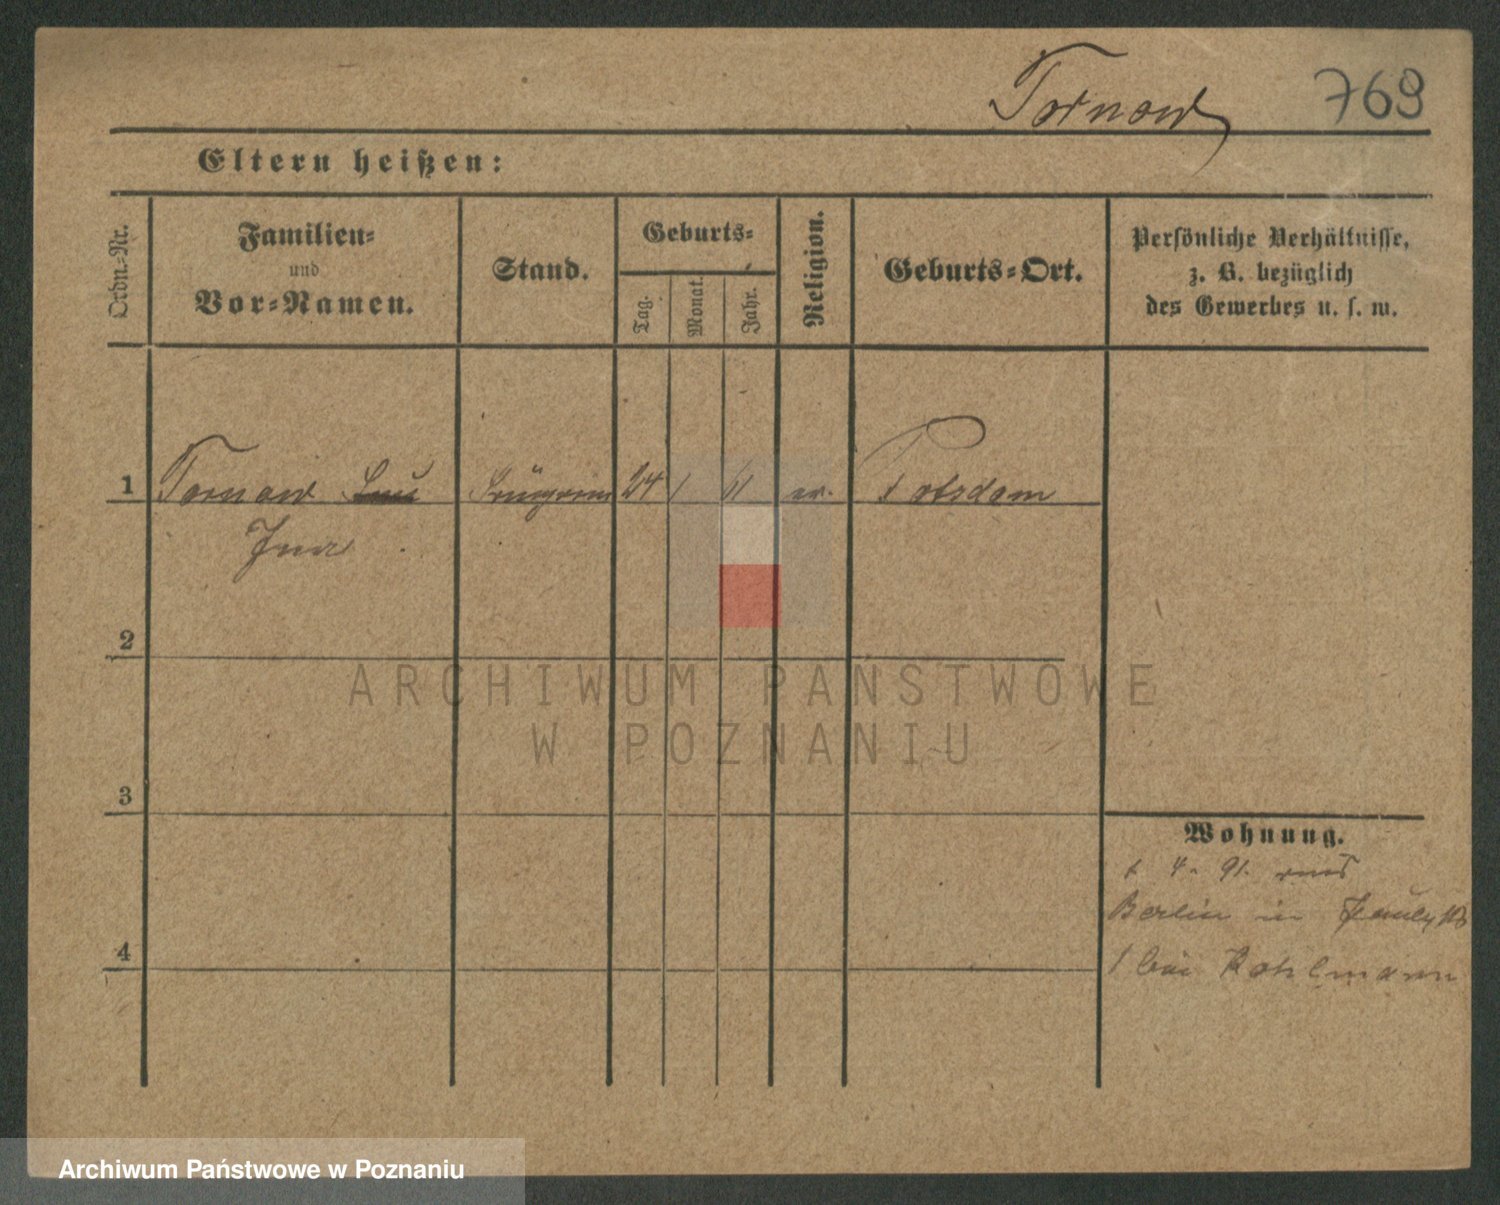 Tornow 769
Eltern heißen:
Ordn.-Nr.
Familien-
und
Vor-Namen.
Stand.
Geburts-
Tag.
Monat.
Jahr.
Religion.
Geburts-Ort.
Persönliche Verhältnisse,
z. B. bezüglich
des Gewerbes u. s. w.
1 Tornow 24 1 61 ev. Potsdam
2
ARCHIWUM PAŃSTWOWE
W POZNANIU
3
Wohnung.
4. 91. aus
Berlin in
4
1 bei Kohlmann
Archiwum Państwowe w Poznaniu